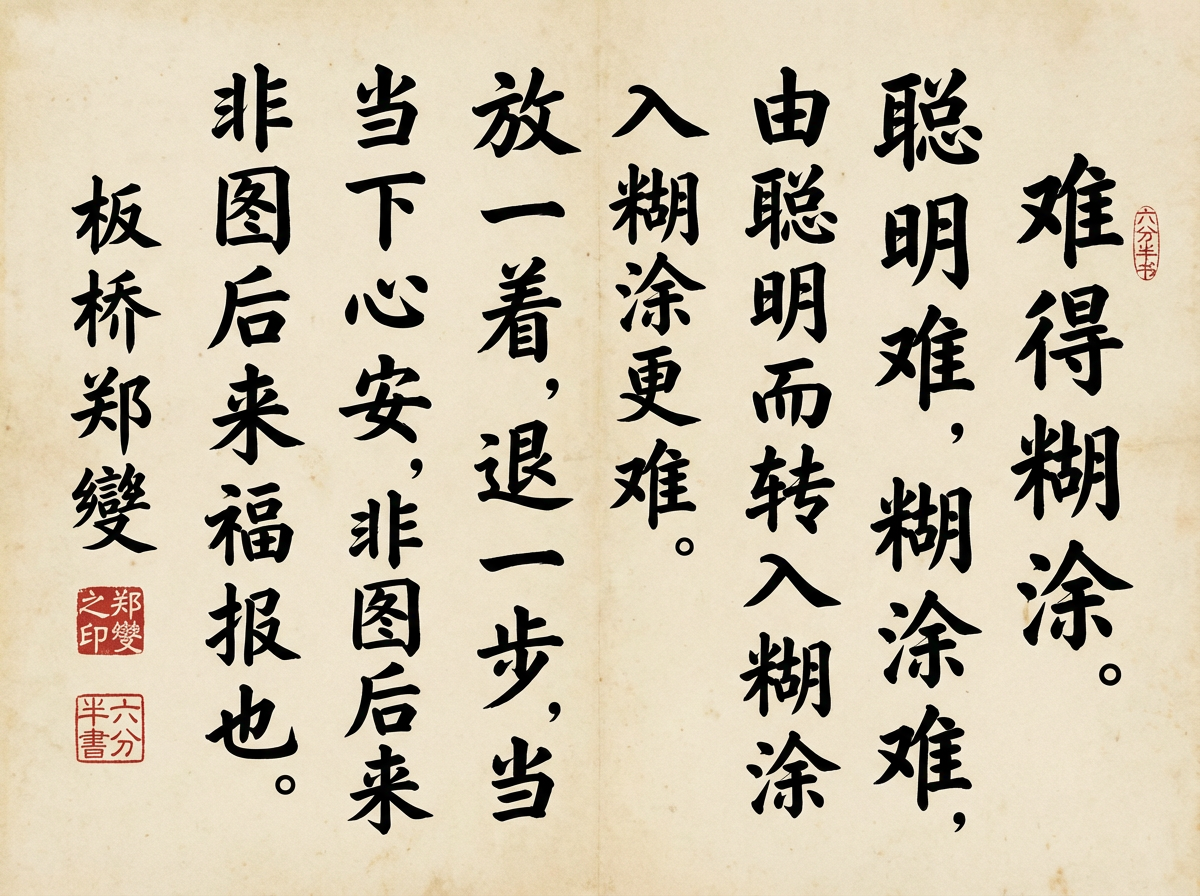 六分半书
难得糊涂。
聪明难，糊涂难，
由聪明而转入糊涂
入糊涂更难。
放一着，退一步，当
当下心安，非图后来
非图后来福报也。
板桥郑變
郑變之印
六分半書